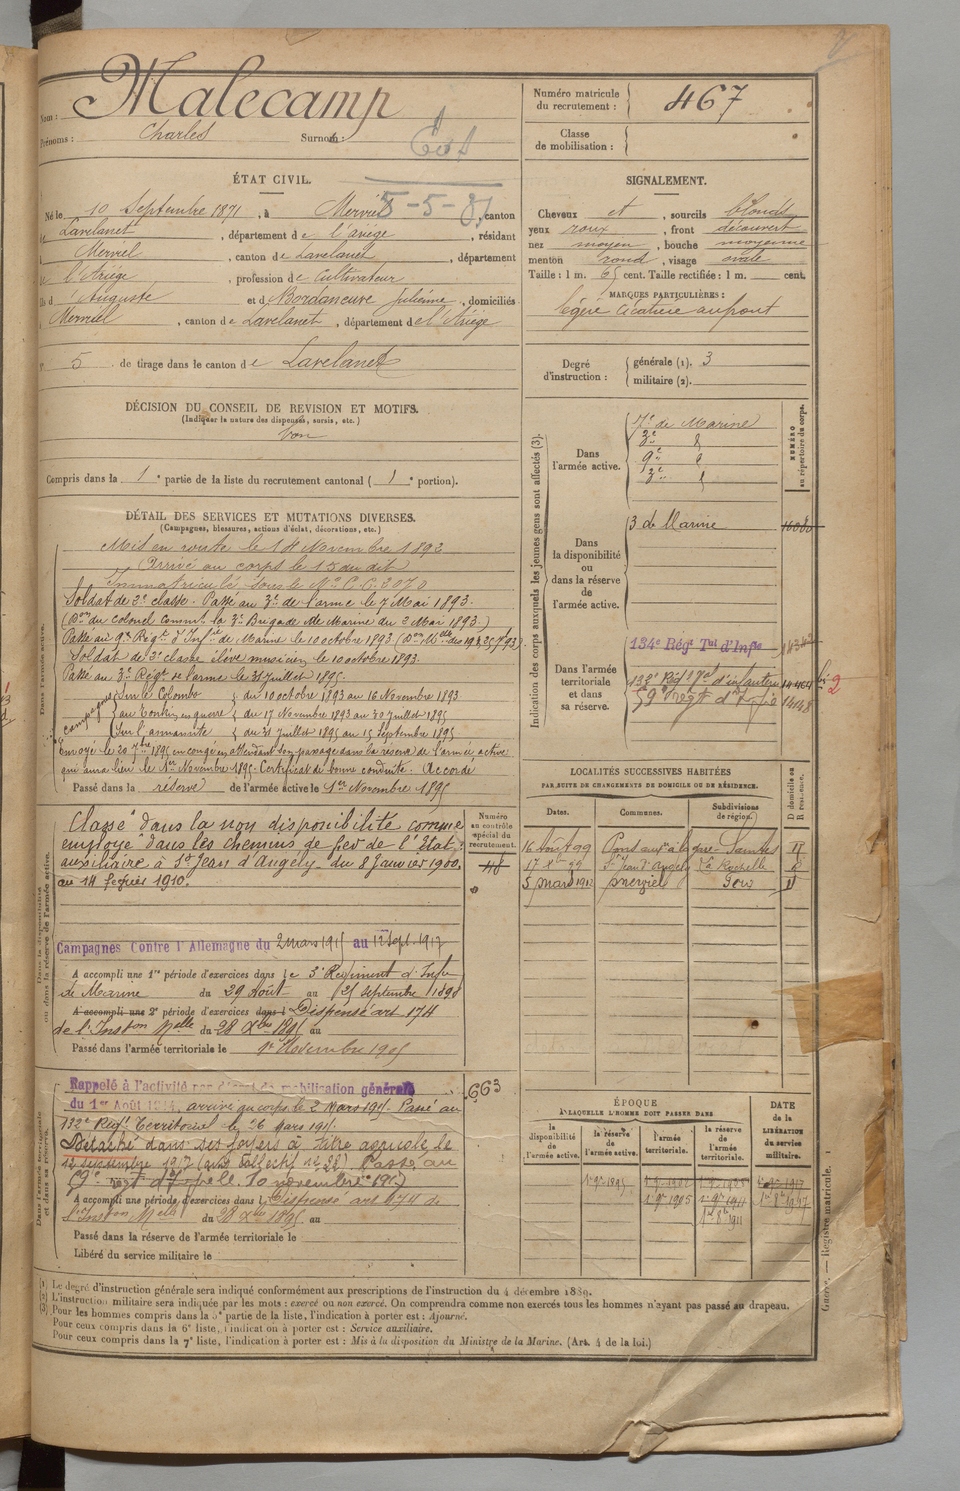 Nom : Malecamp
Prénoms : Charles Surnom :
ÉTAT CIVIL.
Né le 10 Septembre 1871, à Merviel, canton
de Lavelanet, département de l'ariège, résidant
à Merviel, canton de Lavelanet, département
de l'Ariége, profession de Cultivateur
fils d'Auguste et de Bordaneuve Julienne, domiciliés
à Merviel, canton de Lavelanet, département de l'Ariége
N° 5 de tirage dans le canton de Lavelanet
DÉCISION DU CONSEIL DE REVISION ET MOTIFS.
(Indiquer la nature des dispenses, sursis, etc.)
bon
Compris dans la 1e partie de la liste du recrutement cantonal (1e portion).
DÉTAIL DES SERVICES ET MUTATIONS DIVERSES.
(Campagnes, blessures, actions d'éclat, décorations, etc.)
Dans l'armée active.
Mis en route le 14 Novembre 1892
Arrivé au corps le 15 du dit
Immatriculé sous le No C.C. 2070
Soldat de 2e classe. Passé au 3e de l'arme le 7 Mai 1893.
(Don du colonel Commt la 3e Brigade de Marine du 2 Mai 1893.)
Passé au 9e Régt d'Infie de Marine le 10 octobre 1893
Soldat de 2e classe élève musicien le 10 octobre 1893.
Passé au 3e Régt de l'arme le 31 Juillet 1895.
Campagnes
sur le Colombo du 10 octobre 1893 au 16 Novembre 1893.
au Tonkin en guerre du 17 Novembre 1893 au 30 Juillet 1895
sur l'annamite du 31 Juillet 1895 au 15 Septembre 1895
Envoyé le 20 7bre 1895 en congé en attendant son passage dans la réserve de l'armée active
qui aura lieu le 1er Novembre 1895. Certificat de bonne conduite : Accordé
Passé dans la réserve de l'armée active le 1er Novembre 1895
Dans la disponibilité ou dans la réserve de l'armée active.
Numéro au contrôle spécial du recrutement.
48
Classé dans la non disponibilité comme
employé dans les chemins de fer de l'Etat
auxiliaire à St Jean d'Angely du 8 Janvier 1900.
au 14 fevrier 1910.
Campagnes Contre l'Allemagne du 2 mars 1915 au 12 Sept. 1917
A accompli une 1re période d'exercices dans le 3e Régiment d'Infie
de Marine du 29 Août au 25 septembre 1898
A accompli une 2e période d'exercices dans l Dispensé art 174
de l'Inston Melle du 28 Xbre 1895 au
Passé dans l'armée territoriale le 1er Novembre 1905
Dans l'armée territoriale et dans sa réserve.
663
Rappelé à l'activité par décret de mobilisation générale
du 1er Août 1914, arrivé au corps le 2 Mars 1915. Passé au
132e Regt Territorial le 26 mars 1915.
Détaché dans ses foyers à titre agricole le
12 septembre 1917 Passé au
59e regt d'Infie le 10 novembre 1917
A accompli une période d'exercices dans l Dispensé art 174 de
l'Inston Melle du 28 Xbre 1895 au
Passé dans la réserve de l'armée territoriale le
Libéré du service militaire le
Numéro matricule du recrutement : 467
Classe de mobilisation :
SIGNALEMENT.
Cheveux et, sourcils blonds
yeux roux, front découvert
nez moyen, bouche moyenne
menton rond, visage ovale
Taille : 1 m. 65 cent. Taille rectifiée : 1 m. cent.
MARQUES PARTICULIÈRES :
légère cicatrice au front
Degré d'instruction :
générale (1). 3
militaire (2).
Indication des corps auxquels les jeunes gens sont affectés (3).
NUMÉRO au répertoire du corps.
Dans l'armée active.
7e de Marine
3e d
9e d
3e d
Dans la disponibilité ou dans la réserve de l'armée active.
3 de Marine
Dans l'armée territoriale et dans sa réserve.
134e Régt Tal d'Infie
133e Régt Tal d'infanterie 14464 bis 2
59e Regt d'Infie 1448
LOCALITÉS SUCCESSIVES HABITÉES
PAR SUITE DE CHANGEMENTS DE DOMICILE OU DE RÉSIDENCE.
Dates. Communes. Subdivisions de région. D domicile ou R résidence.
16 août 99 Saintes
17 99 St Jean d'Angely La Rochelle
5 mars 1912 Merviel Foix
ÉPOQUE
A LAQUELLE L'HOMME DOIT PASSER DANS
la disponibilité de l'armée active. la réserve de l'armée active. l'armée territoriale. la réserve de l'armée territoriale. DATE de la LIBÉRATION du service militaire.
1 9re 1895
1 9re 1905 1 9re 1911
(1) Le degré d'instruction générale sera indiqué conformément aux prescriptions de l'instruction du 4 décembre 1889.
(2) L'instruction militaire sera indiquée par les mots : exercé ou non exercé. On comprendra comme non exercés tous les hommes n'ayant pas passé au drapeau.
(3) Pour les hommes compris dans la 5e partie de la liste, l'indication à porter est : Ajourné.
Pour ceux compris dans la 6e liste, l'indication à porter est : Service auxiliaire.
Pour ceux compris dans la 7e liste, l'indication à porter est : Mis à la disposition du Ministre de la Marine. (Art. 4 de la loi.)
Guerre. — Registre matricule.